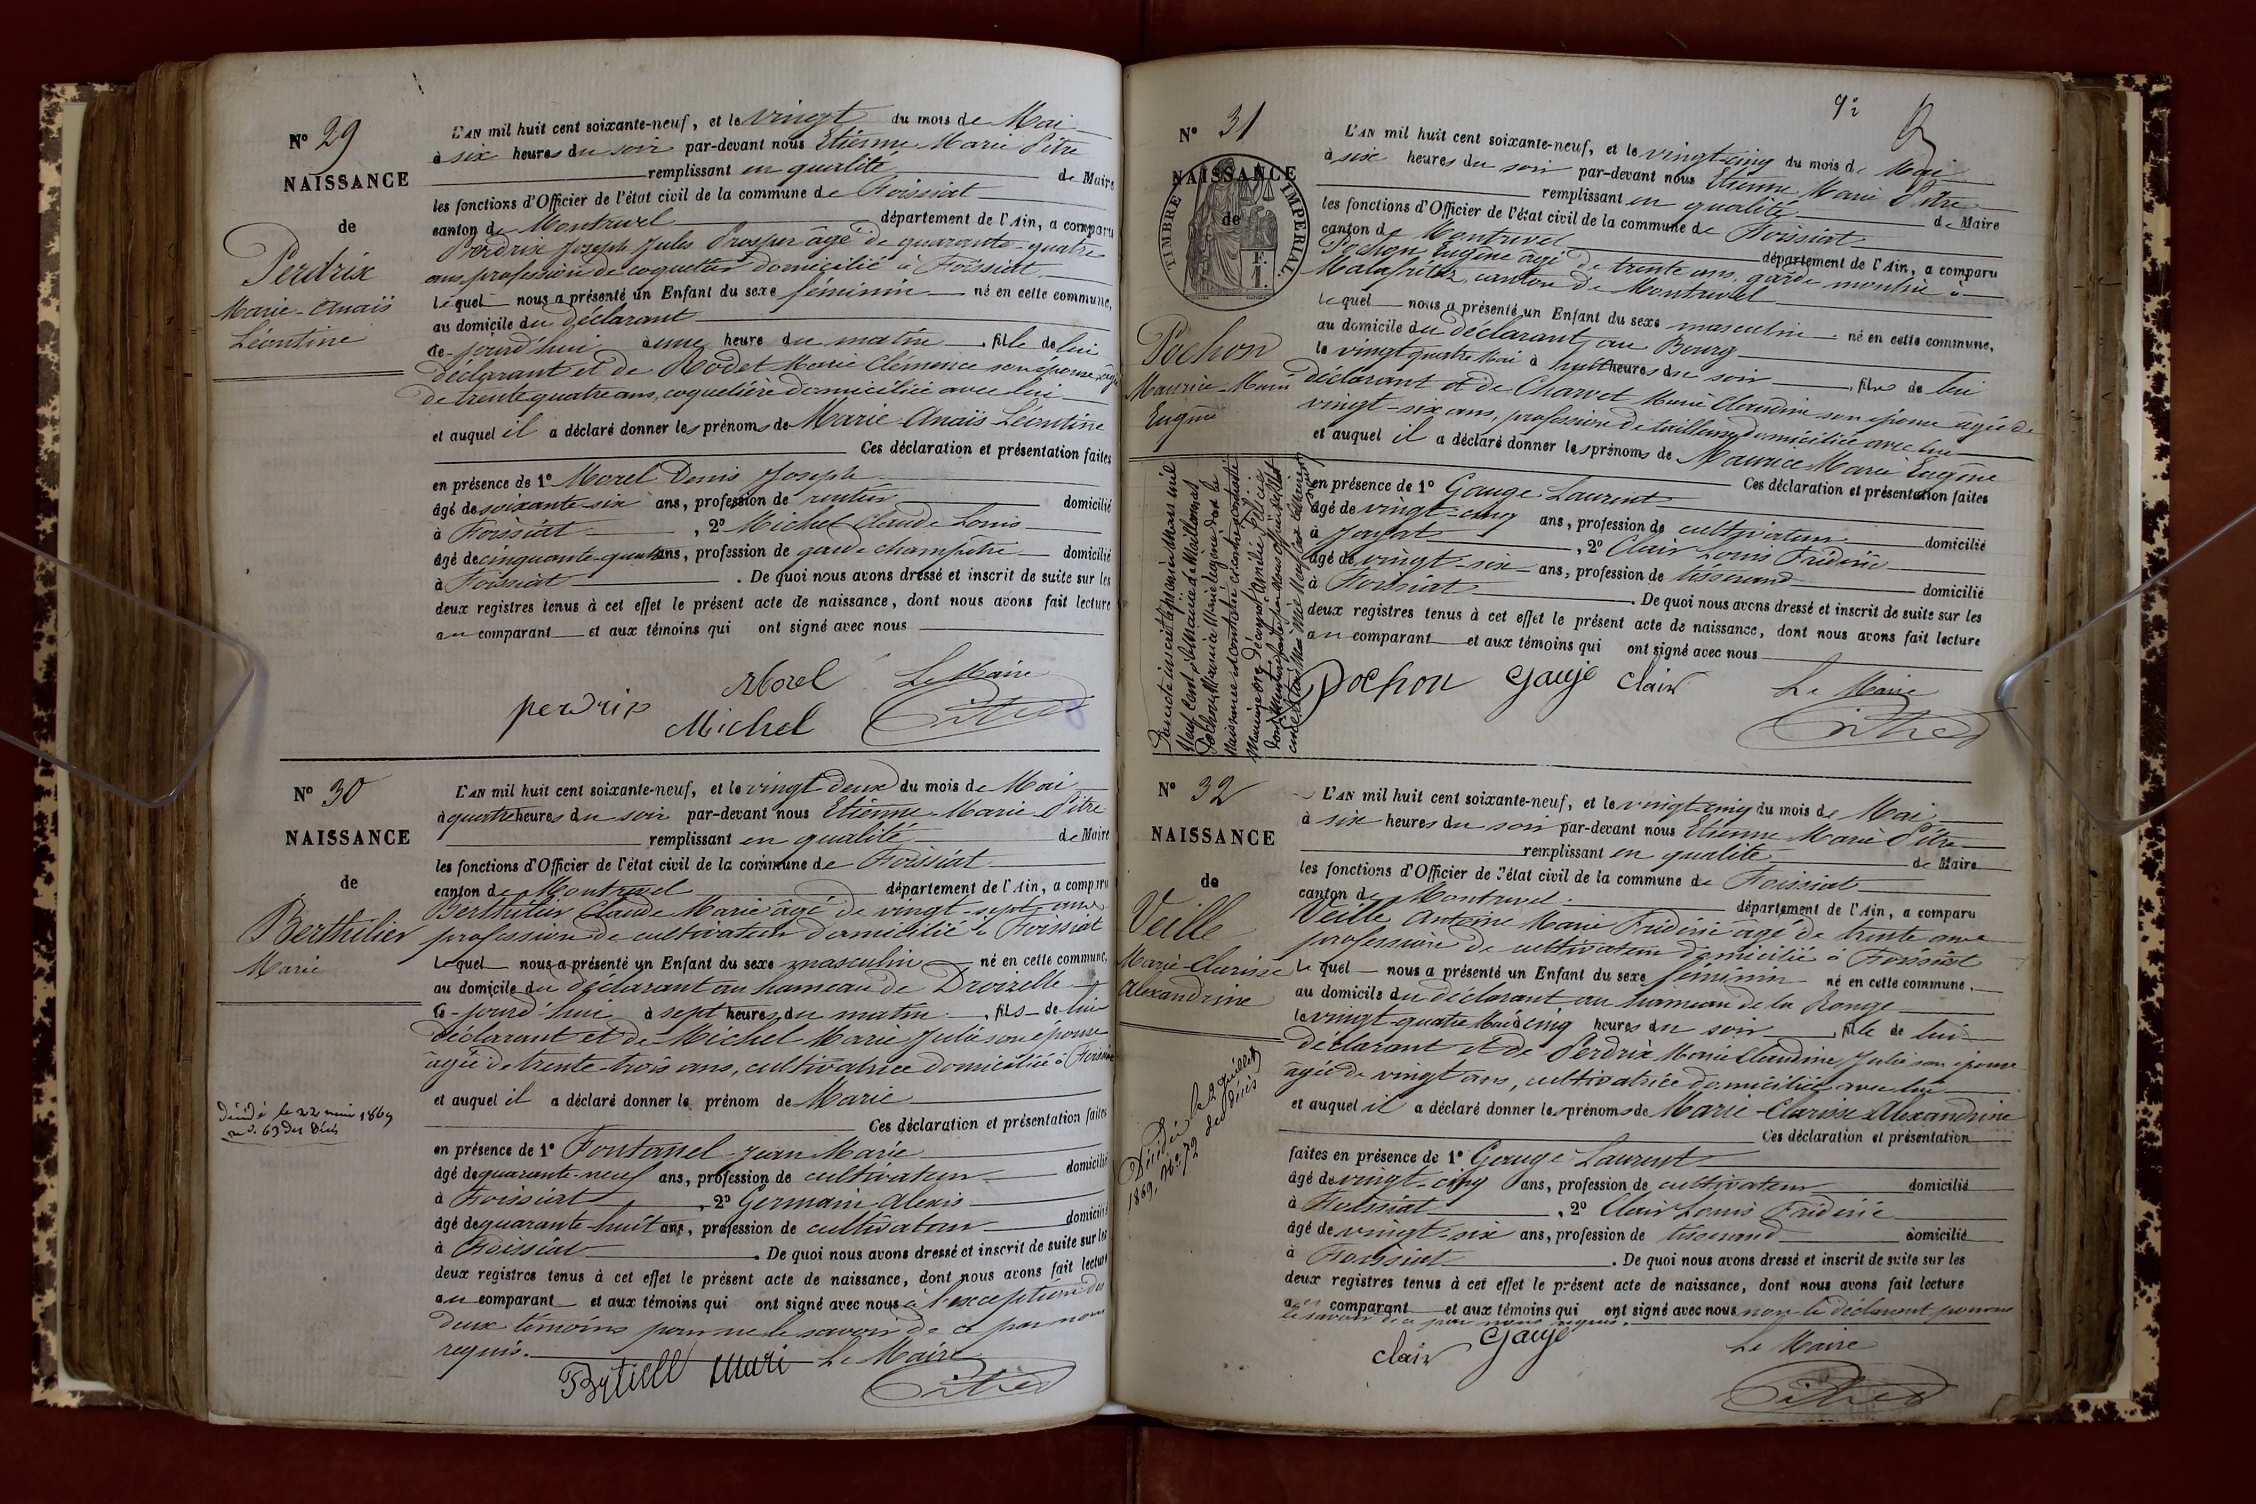 N° 29
NAISSANCE
de
Perdrix
Marie-Anaïs
Léontine
L'AN mil huit cent soixante-neuf, et le vingt du mois de Mai
à six heures du soir par-devant nous Etienne Marie Pitre
remplissant en qualité de Maire
les fonctions d'Officier de l'état civil de la commune de Foissiat
canton de Montrevel département de l'Ain, a comparu
Perdrix Joseph Jules Prosper âgé de quarante-quatre
ans, profession de coquetier domicilié à Foissiat
Lequel nous a présenté un Enfant du sexe féminin né en cette commune,
au domicile du déclarant
ce-jourd'hui à une heure du matin, fille de lui
déclarant et de Rodet Marie Clémence son épouse, âgée
de trente quatre ans, coquetière domiciliée avec lui
et auquel il a déclaré donner les prénoms de Marie Anaïs Léontine
Ces déclaration et présentation faites
en présence de 1° Morel Denis Joseph
âgé de soixante-six ans, profession de rentier domicilié
à Foissiat, 2° Michel Claude Louis
âgé de cinquante-quatre ans, profession de garde champêtre domicilié
à Foissiat. De quoi nous avons dressé et inscrit de suite sur les
deux registres tenus à cet effet le présent acte de naissance, dont nous avons fait lecture
au comparant et aux témoins qui ont signé avec nous
perdrix Morel Le Maire
Michel Pitre
N° 30
NAISSANCE
de
Berthilier
Marie
décédé le 22 mai 1869
n°. 63 des Décès
L'AN mil huit cent soixante-neuf, et le vingt deux du mois de Mai
à quatre heures du soir par-devant nous Etienne Marie Pitre
remplissant en qualité de Maire
les fonctions d'Officier de l'état civil de la commune de Foissiat
canton de Montrevel département de l'Ain, a comparu
Berthilier Claude Marie âgé de vingt-sept ans
profession de cultivateur domicilié à Foissiat
Lequel nous a présenté un Enfant du sexe masculin né en cette commune,
au domicile du déclarant au hameau de Droizelle
ce-jourd'hui à sept heures du matin, fils de lui
déclarant et de Michel Marie Julie son épouse
âgée de trente-trois ans, cultivatrice domiciliée à Foissiat
et auquel il a déclaré donner le prénom de Marie
Ces déclaration et présentation faites
en présence de 1° Fontanel Jean Marie
âgé de quarante-neuf ans, profession de cultivateur domicilié
à Foissiat, 2° Germain Alexis
âgé de quarante-huit ans, profession de cultivateur domicilié
à Foissiat. De quoi nous avons dressé et inscrit de suite sur les
deux registres tenus à cet effet le présent acte de naissance, dont nous avons fait lecture
au comparant et aux témoins qui ont signé avec nous à l'exception des
deux témoins pour ne le savoir de ce par nous
requis. Le Maire
mari Pitre
92
N° 31
NAISSANCE
de
TIMBRE IMPERIAL
1 F.
Pochon
Maurice-Marie
Eugène
L'AN mil huit cent soixante-neuf, et le vingt-cinq du mois de Mai
à six heures du soir par-devant nous Etienne Marie Pitre
remplissant en qualité de Maire
les fonctions d'Officier de l'état civil de la commune de Foissiat
canton de Montrevel département de l'Ain, a comparu
Pochon Eugène âgé de trente ans, garde moulin à
Malafretaz, canton de Montrevel
Lequel nous a présenté un Enfant du sexe masculin né en cette commune,
au domicile du déclarant, au Bourg
le vingt quatre Mai à huit heures du soir, fils de lui
déclarant et de Charvet Marie Claudine son épouse âgée de
vingt-six ans, profession de tailleuse domiciliée avec lui
et auquel il a déclaré donner les prénoms de Maurice Marie Eugène
Ces déclaration et présentation faites
en présence de 1° Gauge Laurent
âgé de vingt-cinq ans, profession de cultivateur domicilié
à Jayat, 2° Clair Louis Frédéric
âgé de vingt-six ans, profession de tisserand domicilié
à Foissiat. De quoi nous avons dressé et inscrit de suite sur les
deux registres tenus à cet effet le présent acte de naissance, dont nous avons fait lecture
au comparant et aux témoins qui ont signé avec nous
Pochon Gauge Clair Le Maire
Pitre
Par acte inscrit le premier Mars mil
Neuf Cent à la Mairie de
Pochon Maurice Marie Eugène dont la
naissance est contre a contracté
Mariage avec
N° 32
NAISSANCE
de
Veille
Marie-Clarisse
Alexandrine
Décédée le 2 juillet
1869, N° 72 des décès
L'AN mil huit cent soixante-neuf, et le vingt-cinq du mois de Mai
à six heures du soir par-devant nous Etienne Marie Pitre
remplissant en qualité de Maire
les fonctions d'Officier de l'état civil de la commune de Foissiat
canton de Montrevel département de l'Ain, a comparu
Veille Antoine Marie Frédéric âgé de trente ans
profession de cultivateur domicilié à Foissiat
Lequel nous a présenté un Enfant du sexe féminin né en cette commune,
au domicile du déclarant au hameau de la Ronge
le vingt-quatre Mai à cinq heures du soir, fille de lui
déclarant et de Perdrix Marie Claudine Julie son épouse
âgée de vingt ans, cultivatrice domiciliée avec lui
et auquel il a déclaré donner les prénoms de Marie-Clarisse Alexandrine
Ces déclaration et présentation
faites en présence de 1° Gauge Laurent
âgé de vingt-cinq ans, profession de cultivateur domicilié
à Foissiat, 2° Clair Louis Frédéric
âgé de vingt-six ans, profession de tisserand domicilié
à Foissiat. De quoi nous avons dressé et inscrit de suite sur les
deux registres tenus à cet effet le présent acte de naissance, dont nous avons fait lecture
au comparant et aux témoins qui ont signé avec nous non le déclarant pour ne
le savoir de ce par nous requis.
Clair Gauge Le Maire
Pitre